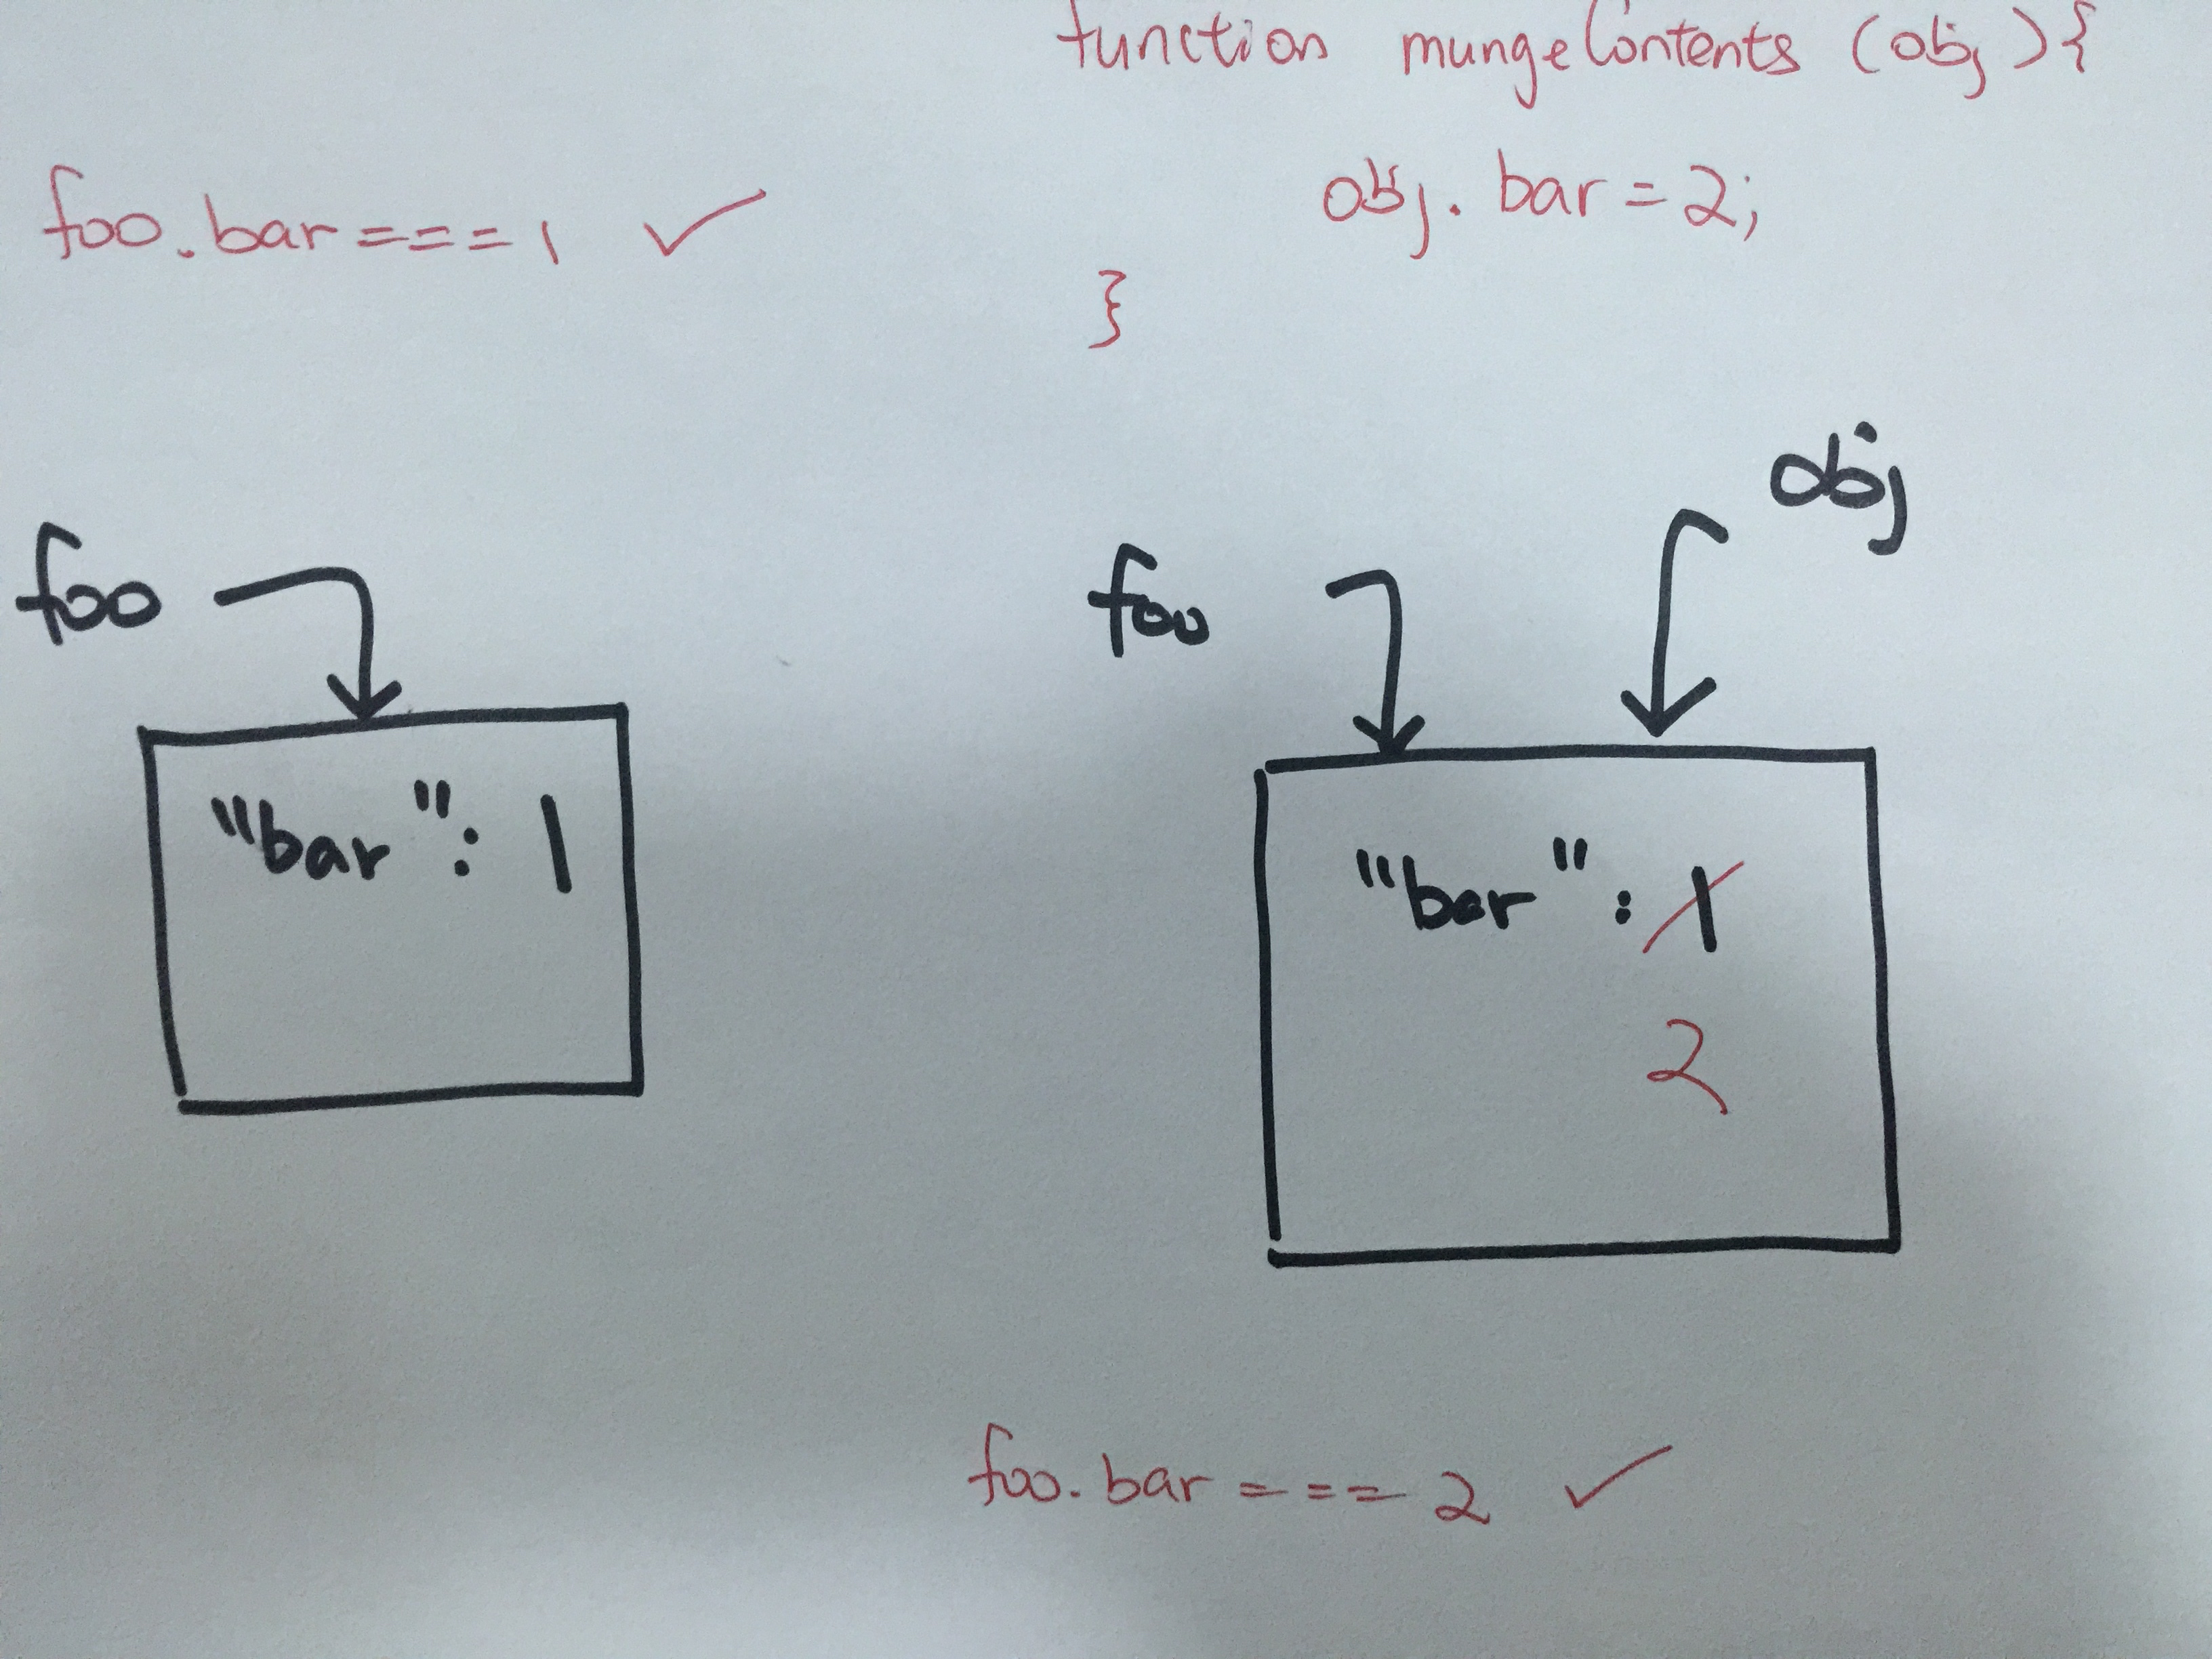 function mungeContents (obj) {
obj. bar = 2;
}
foo.bar === 1 ✓
foo
"bar": 1
foo
obj
"bar": 1
2
foo.bar === 2 ✓